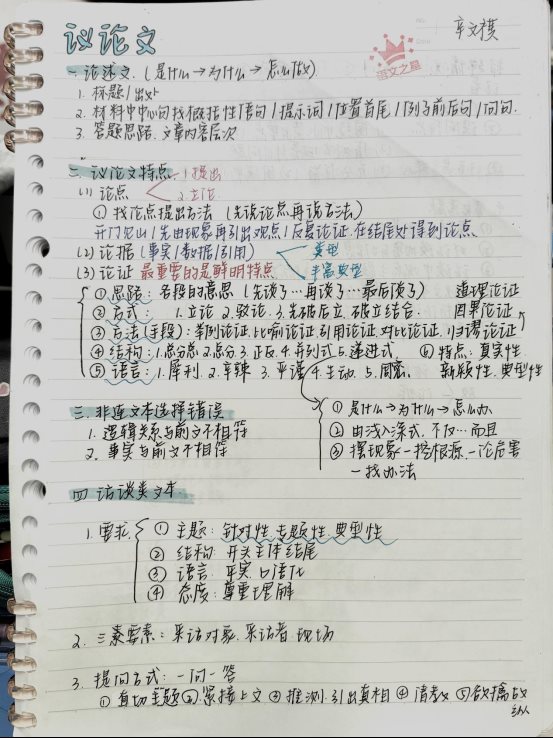 辛文褀
语文之星
议论文
一.论述文.(是什么→为什么→怎么做)
1. 标题/出处
2. 材料中中心句找概括性语句/提示词/位置首尾/例子前后句/问句.
3. 答题思路.文章内容层次
二.议论文特点
1.提出
(1) 论点
2.立论
① 找论点提出方法 (先说论点再说方法)
开门见山/先由现象再引出观点/反复论证.在结尾处得到论点
(2) 论据 (事实/数据/引用)
类型
丰富典型
(3) 论证 最重要的是鲜明特点
① 思路: 各段的意思 (先谈了…再谈了…最后谈了) 道理论证
② 方式: 1.立论 2.驳论.3.先破后立.破立结合. 因果论证
③ 方法(手段): 举例论证.比喻论证.引用论证.对比论证.归谬论证
④ 结构: 1.总分总 2.总分 3.正反.4.并列式 5.递进式 ⑥ 特点: 真实性.
⑤ 语言: 1.犀利. 2.辛辣 3.平谨 4.生动 5.周密. 新颖性.典型性
三.非连文本选择错误
1. 逻辑关系与前文不相符
2. 事实与前文不相符
① 是什么→为什么→怎么办
② 由浅入深式.不仅…而且
③ 摆现象—挖根源.—论危害
—找办法
四 访谈类文本
1.要求.
① 主题: 针对性 专题性 典型性
② 结构: 开头主体结尾
③ 语言: 平实.口语化
④ 态度: 尊重理解
2. 三素要素: 采访对象.采访者 现场
3. 提问方式: 一问一答
①直切主题②紧接上文③推测.引出真相④请教⑤欲擒故纵